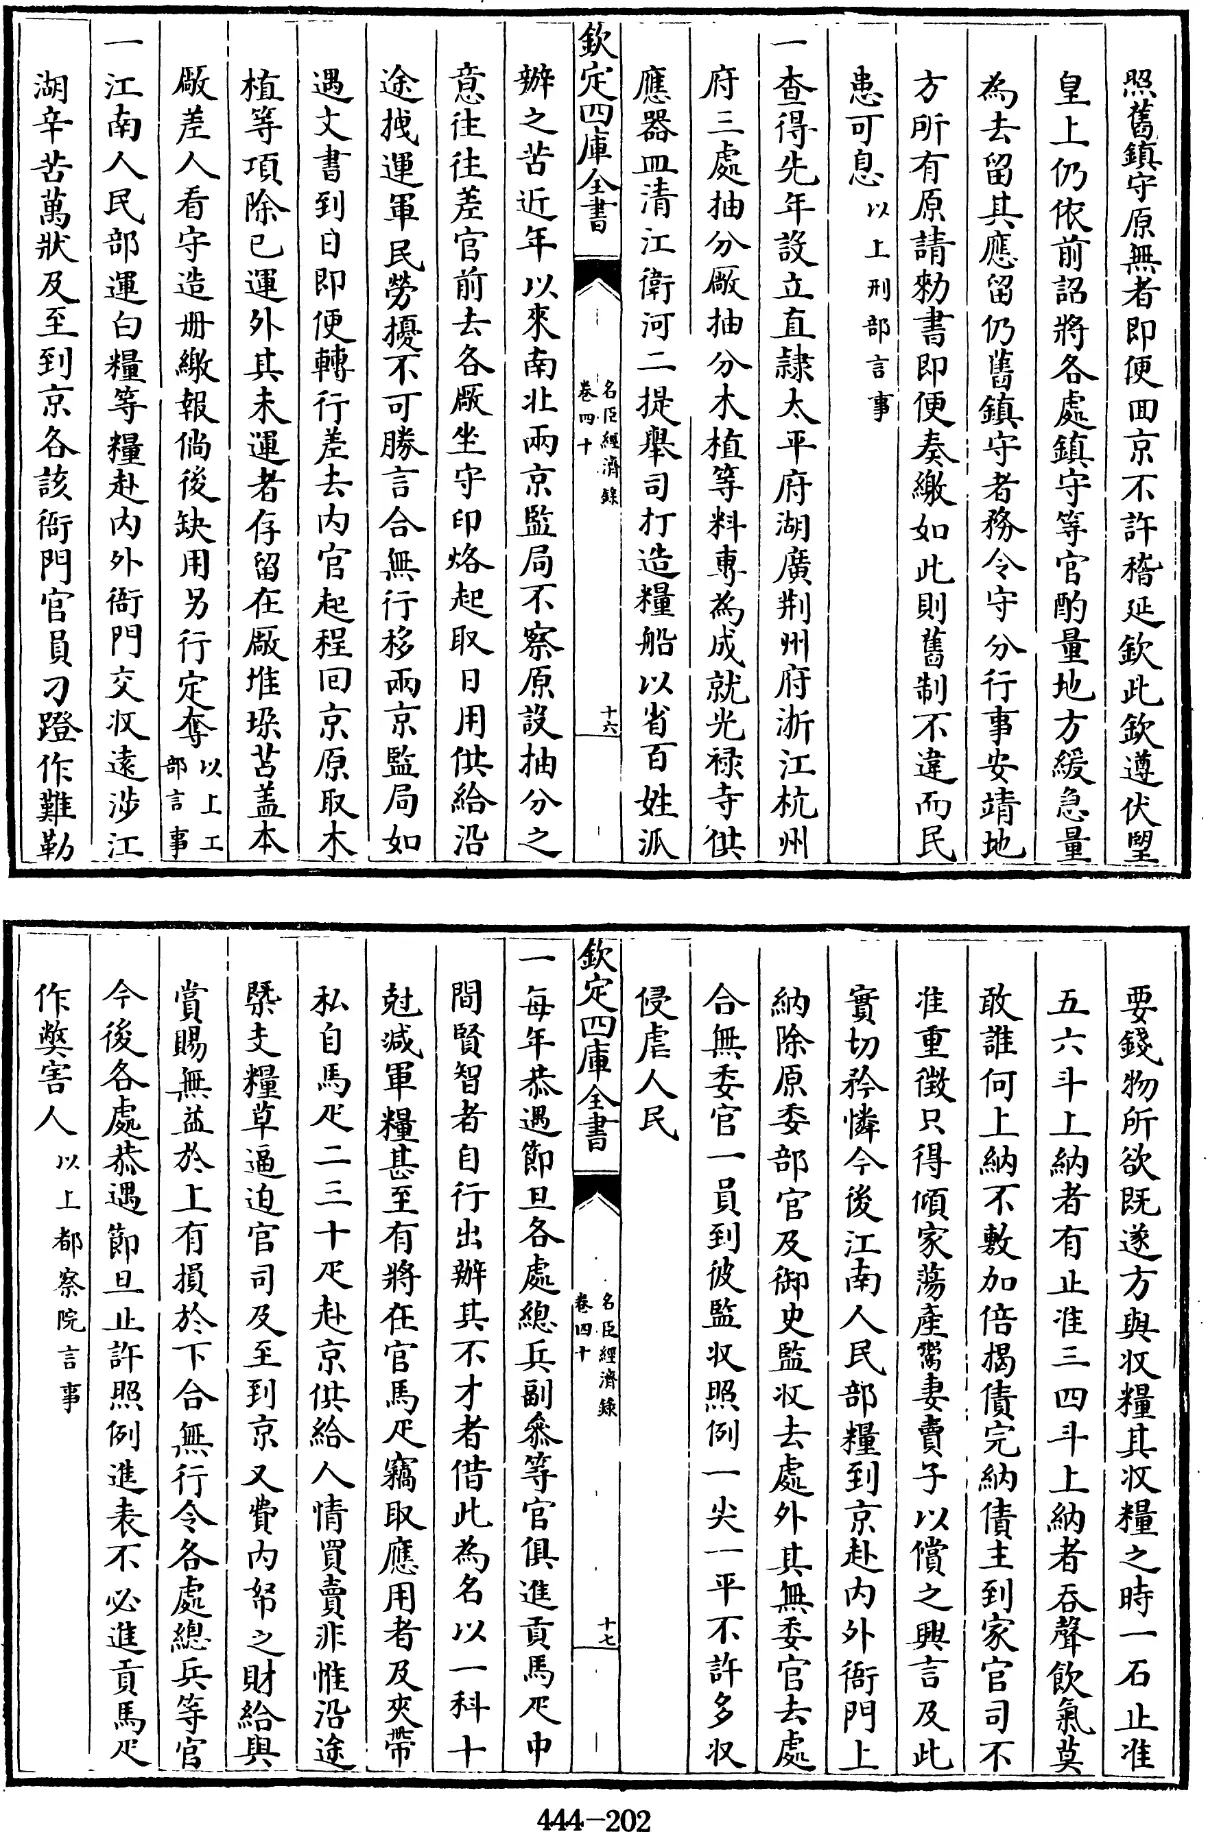 照舊鎮守原無者即便囬京不許稽延欽此欽遵伏望
皇上仍依前詔將各處鎮守等官酌量地方緩急量
為去留其應留仍舊鎮守者務令守分行事安靖地
方所有原請勑書即便奏繳如此則舊制不違而民
患可息以上刑部言事
一查得先年設立直𨽻太平府湖廣荆州府浙江杭州
府三處抽分厰抽分木植等料專為成就光禄寺供
應器皿清江衛河二提舉司打造糧船以省百姓派
欽定四庫全書
名臣經濟錄
卷四十
十六
辦之苦近年以來南北兩京監局不察原設抽分之
意往往差官前去各厰坐守印烙起取日用供給沿
途拽運軍民勞擾不可勝言合無行移兩京監局如
遇文書到日即便轉行差去内官起程回京原取木
植等項除已運外其未運者存留在厰堆垜苫盖本
厰差人看守造册繳報倘後缺用另行定奪以上工
部言事
一江南人民部運白糧等糧赴内外衙門交收遠涉江
湖辛苦萬狀及至到京各該衙門官員刁蹬作難勒
要錢物所欲既遂方與收糧其收糧之時一石止准
五六斗上納者有止准三四斗上納者吞聲飲氣莫
敢誰何上納不敷加倍揭債完納債主到家官司不
准重徴只得傾家蕩產鬻妻賣子以償之興言及此
實切矜憐今後江南人民部糧到京赴内外衙門上
納除原委部官及御史監收去處外其無委官去處
合無委官一員到彼監收照例一尖一平不許多收
侵虐人民
欽定四庫全書
名臣經濟錄
卷四十
十七
一每年恭遇節旦各處總兵副叅等官俱進貢馬疋中
間賢智者自行出辦其不才者借此為名以一科十
尅減軍糧甚至有將在官馬疋竊取應用者及夾帶
私自馬疋二三十疋赴京供給人情買賣非惟沿途
槩支糧草逼迫官司及至到京又費内帑之財給與
賞賜無益於上有損於下合無行令各處總兵等官
今後各處恭遇節旦止許照例進表不必進貢馬疋
作𡚁害人以上都察院言事
444-202